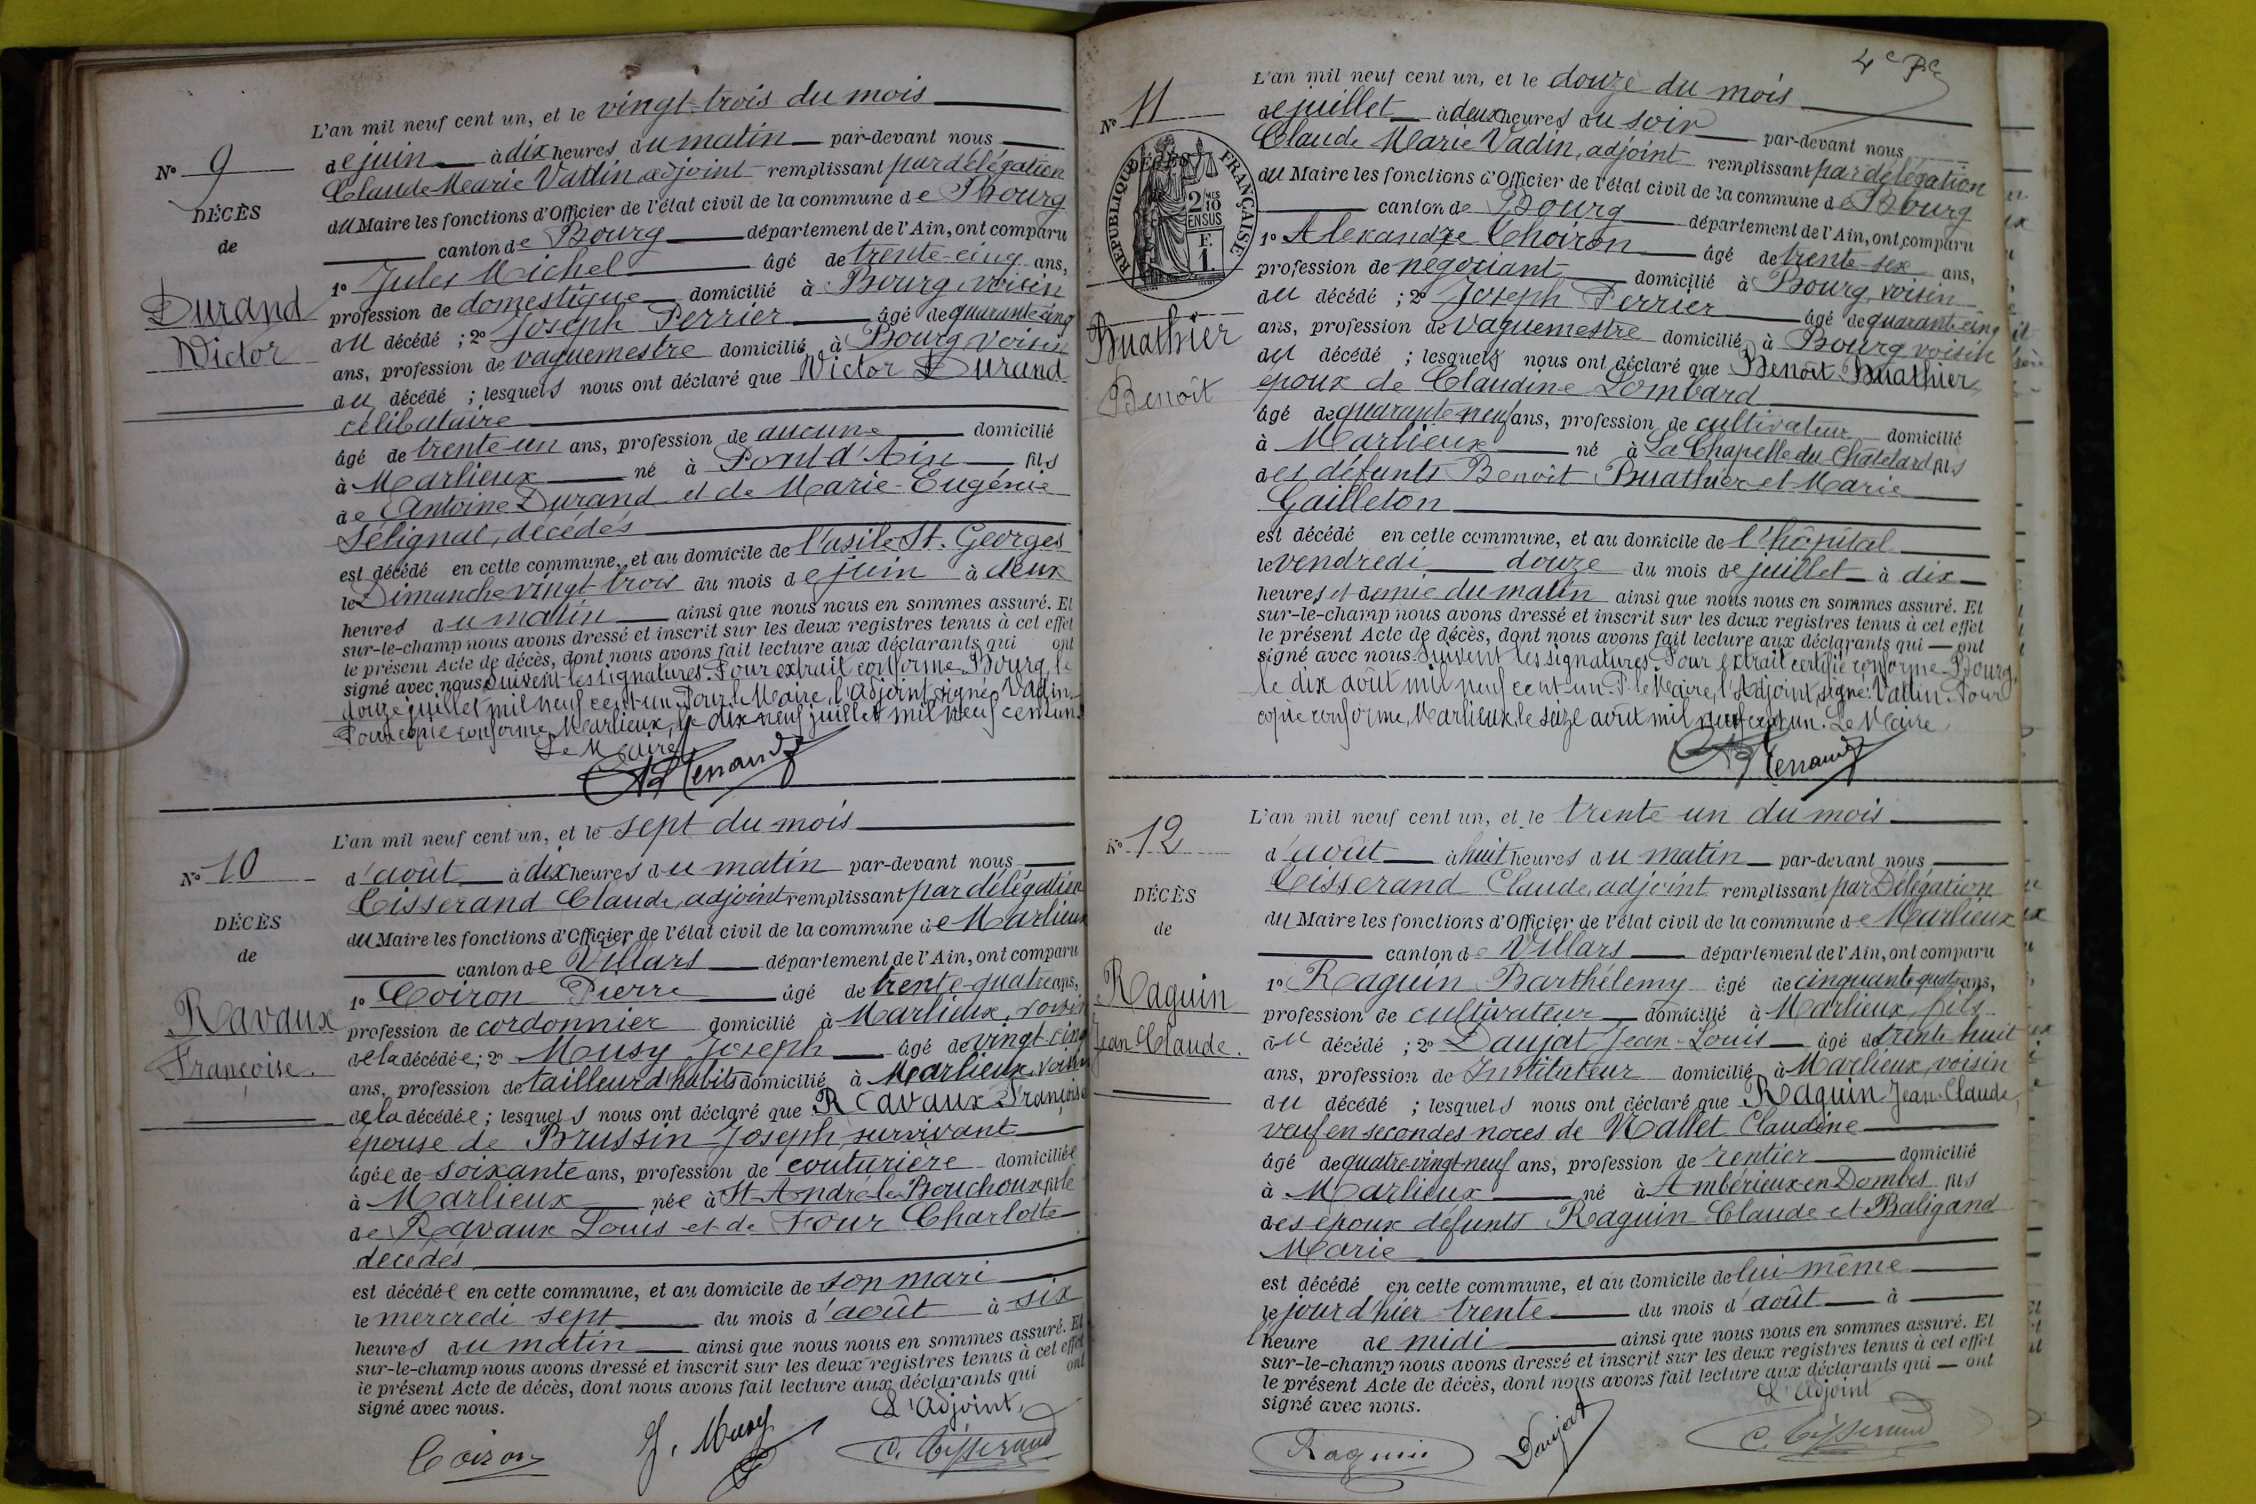 L'an mil neuf cent un, et le vingt-trois du mois
de juin à dix heures du matin par-devant nous
Claude Marie Vadin adjoint remplissant par délégation
du Maire les fonctions d'Officier de l'état civil de la commune de Bourg
canton de Bourg département de l'Ain, ont comparu
1º Jules Michel âgé de trente-cinq ans,
profession de domestique domicilié à Bourg, voisin
du décédé ; 2º Joseph Perrier âgé de quarante cinq
ans, profession de vaguemestre domicilié à Bourg voisin
du décédé ; lesquels nous ont déclaré que Victor Durand
célibataire
âgé de trente-un ans, profession de aucune domicilié
à Marlieux né à Pont d'Ain fils
de Antoine Durand et de Marie-Eugénie
Sélignat, décédés
est décédé en cette commune, et au domicile de l'asile St. Georges
le Dimanche vingt-trois du mois de juin à deux
heures du matin ainsi que nous nous en sommes assuré. Et
sur-le-champ nous avons dressé et inscrit sur les deux registres tenus à cet effet
le présent Acte de décès, dont nous avons fait lecture aux déclarants qui ont
signé avec nous. Suivent les signatures. Pour extrait conforme. Bourg, le
douze juillet mil neuf cent un. Pour le Maire, l'adjoint signé: Vadin
Pour copie conforme, Marlieux, le dix neuf juillet mil neuf cent un.
Le Maire
Nº 9
DÉCÈS
de
Durand
Victor
L'an mil neuf cent un, et le sept du mois
d'août à dix heures du matin par-devant nous
Tisserand Claude, adjoint remplissant par délégation
du Maire les fonctions d'Officier de l'état civil de la commune de Marlieux
canton de Villars département de l'Ain, ont comparu
1º Coiron Pierre âgé de trente-quatre ans,
profession de cordonnier domicilié à Marlieux, voisin
de la décédée ; 2º Musy Joseph âgé de vingt-cinq
ans, profession de tailleur d'habits domicilié à Marlieux, voisin
de la décédée ; lesquels nous ont déclaré que Ravaux Françoise
épouse de Brussin Joseph, survivant
âgée de soixante ans, profession de couturière domiciliée
à Marlieux née à St André-le-Bouchoux fille
de Ravaux Louis et de Four Charlotte
décédés
est décédée en cette commune, et au domicile de son mari
le mercredi sept du mois d'août à six
heures du matin ainsi que nous nous en sommes assuré. Et
sur-le-champ nous avons dressé et inscrit sur les deux registres tenus à cet effet
le présent Acte de décès, dont nous avons fait lecture aux déclarants qui ont
signé avec nous.
L'adjoint,
Coiron J. Musy C. Tisserand
Nº 10
DÉCÈS
de
Ravaux
Françoise.
4e Pce
L'an mil neuf cent un, et le douze du mois
de juillet à deux heures du soir par-devant nous
Claude Marie Vadin, adjoint remplissant par délégation
du Maire les fonctions d'Officier de l'état civil de la commune de Bourg
canton de Bourg département de l'Ain, ont comparu
1º Alexandre Choiron âgé de trente-six ans,
profession de négociant domicilié à Bourg, voisin
du décédé ; 2º Joseph Perrier âgé de quarante-cinq
ans, profession de vaguemestre domicilié à Bourg voisin
du décédé ; lesquels nous ont déclaré que Benoît Buathier
époux de Claudine Lombard
âgé de quarante-neuf ans, profession de cultivateur domicilié
à Marlieux né à La Chapelle du Châtelard fils
des défunts Benoît Buathier et Marie
Gailleton
est décédé en cette commune, et au domicile de l'hôpital
le vendredi douze du mois de juillet à dix
heures et demie du matin ainsi que nous nous en sommes assuré. Et
sur-le-champ nous avons dressé et inscrit sur les deux registres tenus à cet effet
le présent Acte de décès, dont nous avons fait lecture aux déclarants qui ont
signé avec nous. Suivent les signatures. Pour extrait certifié conforme. Bourg,
le dix août mil neuf cent un. P. le Maire, l'Adjoint, signé: Vadin. Pour
copie conforme, Marlieux, le seize août mil neuf cent un. Le Maire,
Nº 11
RÉPUBLIQUE FRANÇAISE
2/10 EN SUS
F.
1.
Buathier
Benoît
L'an mil neuf cent un, et le trente-un du mois
d'août à huit heures du matin par-devant nous
Tisserand Claude, adjoint remplissant par Délégation
du Maire les fonctions d'Officier de l'état civil de la commune de Marlieux
canton de Villars département de l'Ain, ont comparu
1º Raguin Barthélemy âgé de cinquante-quatre ans,
profession de cultivateur domicilié à Marlieux, fils
du décédé ; 2º Daujat Jean-Louis âgé de trente huit
ans, profession de Instituteur domicilié à Marlieux, voisin
du décédé ; lesquels nous ont déclaré que Raguin Jean-Claude,
veuf en secondes noces de Mallet Claudine
âgé de quatre-vingt-neuf ans, profession de rentier domicilié
à Marlieux né à Ambérieux-en-Dombes fils
des époux défunts Raguin Claude et Baligand
Marie
est décédé en cette commune, et au domicile de lui-même
le jour d'hier trente du mois d'août à
l'heure de midi ainsi que nous nous en sommes assuré. Et
sur-le-champ nous avons dressé et inscrit sur les deux registres tenus à cet effet
le présent Acte de décès, dont nous avons fait lecture aux déclarants qui ont
signé avec nous.
L'adjoint
Raguin Daujat C. Tisserand
Nº 12
DÉCÈS
de
Raguin
Jean Claude.